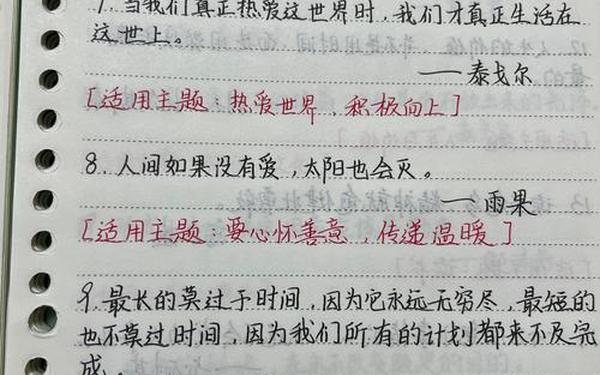 7.当我们真正热爱这世界时,我们才真正生活在
这世上。
——泰戈尔
[适用主题:热爱世界,积极向上]
8.人间如果没有爱,太阳也会灭。
——雨果
[适用主题:要心怀善意,传递温暖]
9.最长的莫过于时间,因为它永远无穷尽,最短的
也不莫过时间,因为我们所有的计划都来不及完
成。